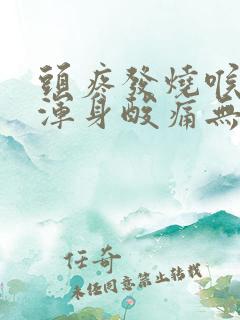 頭疼發燒喉
渾身酸痛無
任奇
未經同意禁止轉載